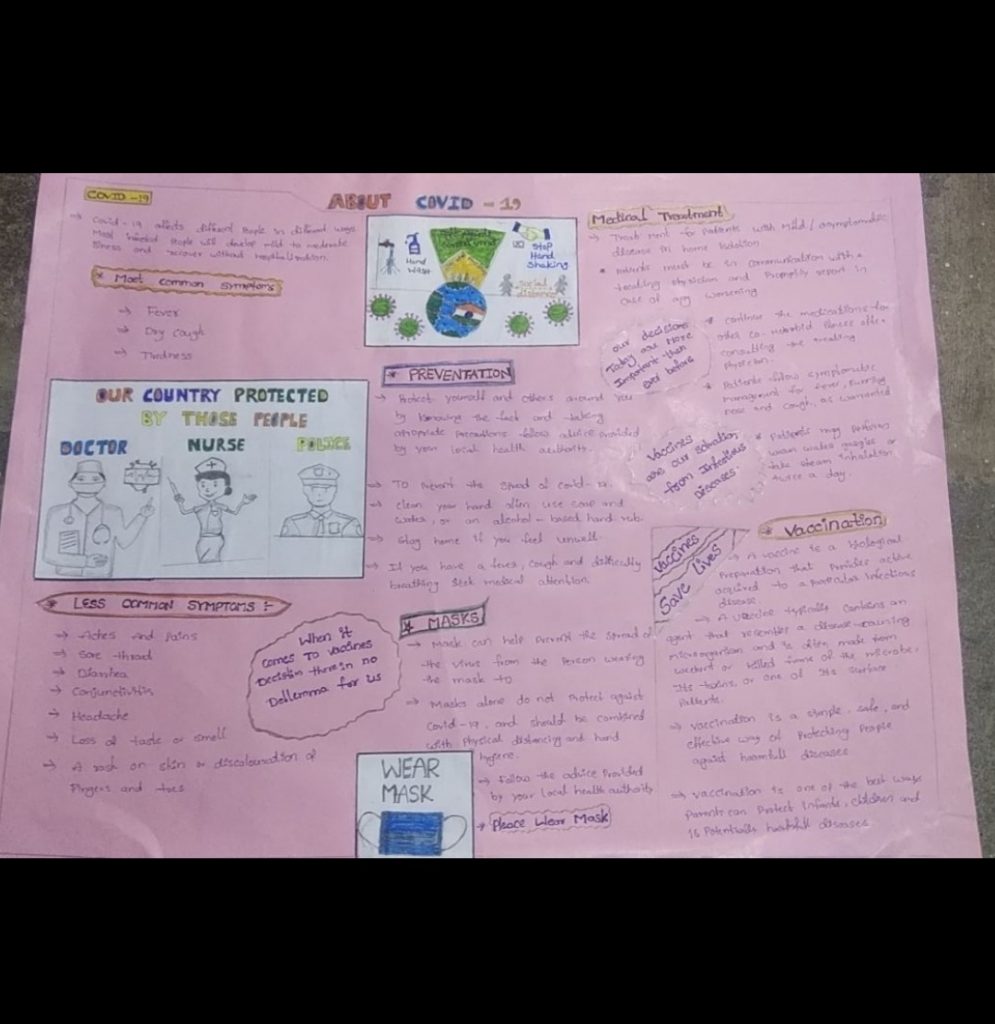 ABOUT COVID - 19
COVID -19
→ Covid - 19 affects different People in different ways
Most infected People will develop mild to moderate
illness and recover without hospitalization.
* Most common Symptoms
→ Fever
→ Dry Cough
→ Tiredness
OUR COUNTRY PROTECTED
BY THOSE PEOPLE
DOCTOR NURSE POLICE
* LESS COMMON SYMPTOMS :-
→ Aches And Pains
→ Sore throat
→ Diarrhea
→ Conjunctivitis
→ Headache
→ Loss of taste or smell
→ A rash on skin or discolouration of
Fingers and toes
When it
comes To Vaccines
Decision there in no
Dellemma for us
Hand
Wash
Stop
Hand
Shaking
Social
distance
* PREVENTATION
→ Protect yourself and others around you
by knowing the fact and taking
apropriate Precautions follow advice provided
by your local health authority.
→ TO Prevent the Spread of Covid-19.
→ clean your hand often use soap and
water, or an alcohol - based hand rub.
→ Stay home if you feel unwell.
→ If you have a fever, cough and difficultly
breathing Seek medical attention.
* MASKS
→ Mask can help Prevent the Spread of
the virus from the Person wearing
the mask to
→ Masks alone do not Protect against
Covid-19, and should be combined
with Physical distancing and hand
hygiene.
→ follow the advice Provided
by your local health authority
* Pleace Wear Mask
WEAR
MASK
Medical Treatment
→ Treat ment for Patients with Mild / asymptomatic
disease in home Isolation
* Patients must be in communication with a
treating physician and Promptly report in
case of any worsening
our decisions
Today are More
Important then
ever before
* Continue the medications for
other co-morbid illness after
consulting the treating
physician.
* Patients follow symptomatic
management for fever, running
nose and cough, as warranted
Vaccines
are our salvation
from Infectious
Diseases.
* Patients may perform
warm water gargles or
take steam inhalation
twice a day.
Vaccines
Save Lives
* Vaccination
→ A vaccine is a biological
Preparation that Provides active
acquired to a particular infectious
disease.
→ A vaccine typically contains an
agent that resembles a disease-causing
microorganism and is often made from
or killed forms of the microbe,
Its toxins, or one of its surface
→ Vaccination is a simple, safe, and
effective way of Protecting People
against harmfull diseases
→ Vaccination is one of the best ways
Parents can Protect Infants, children and
Potentially harmfull diseases